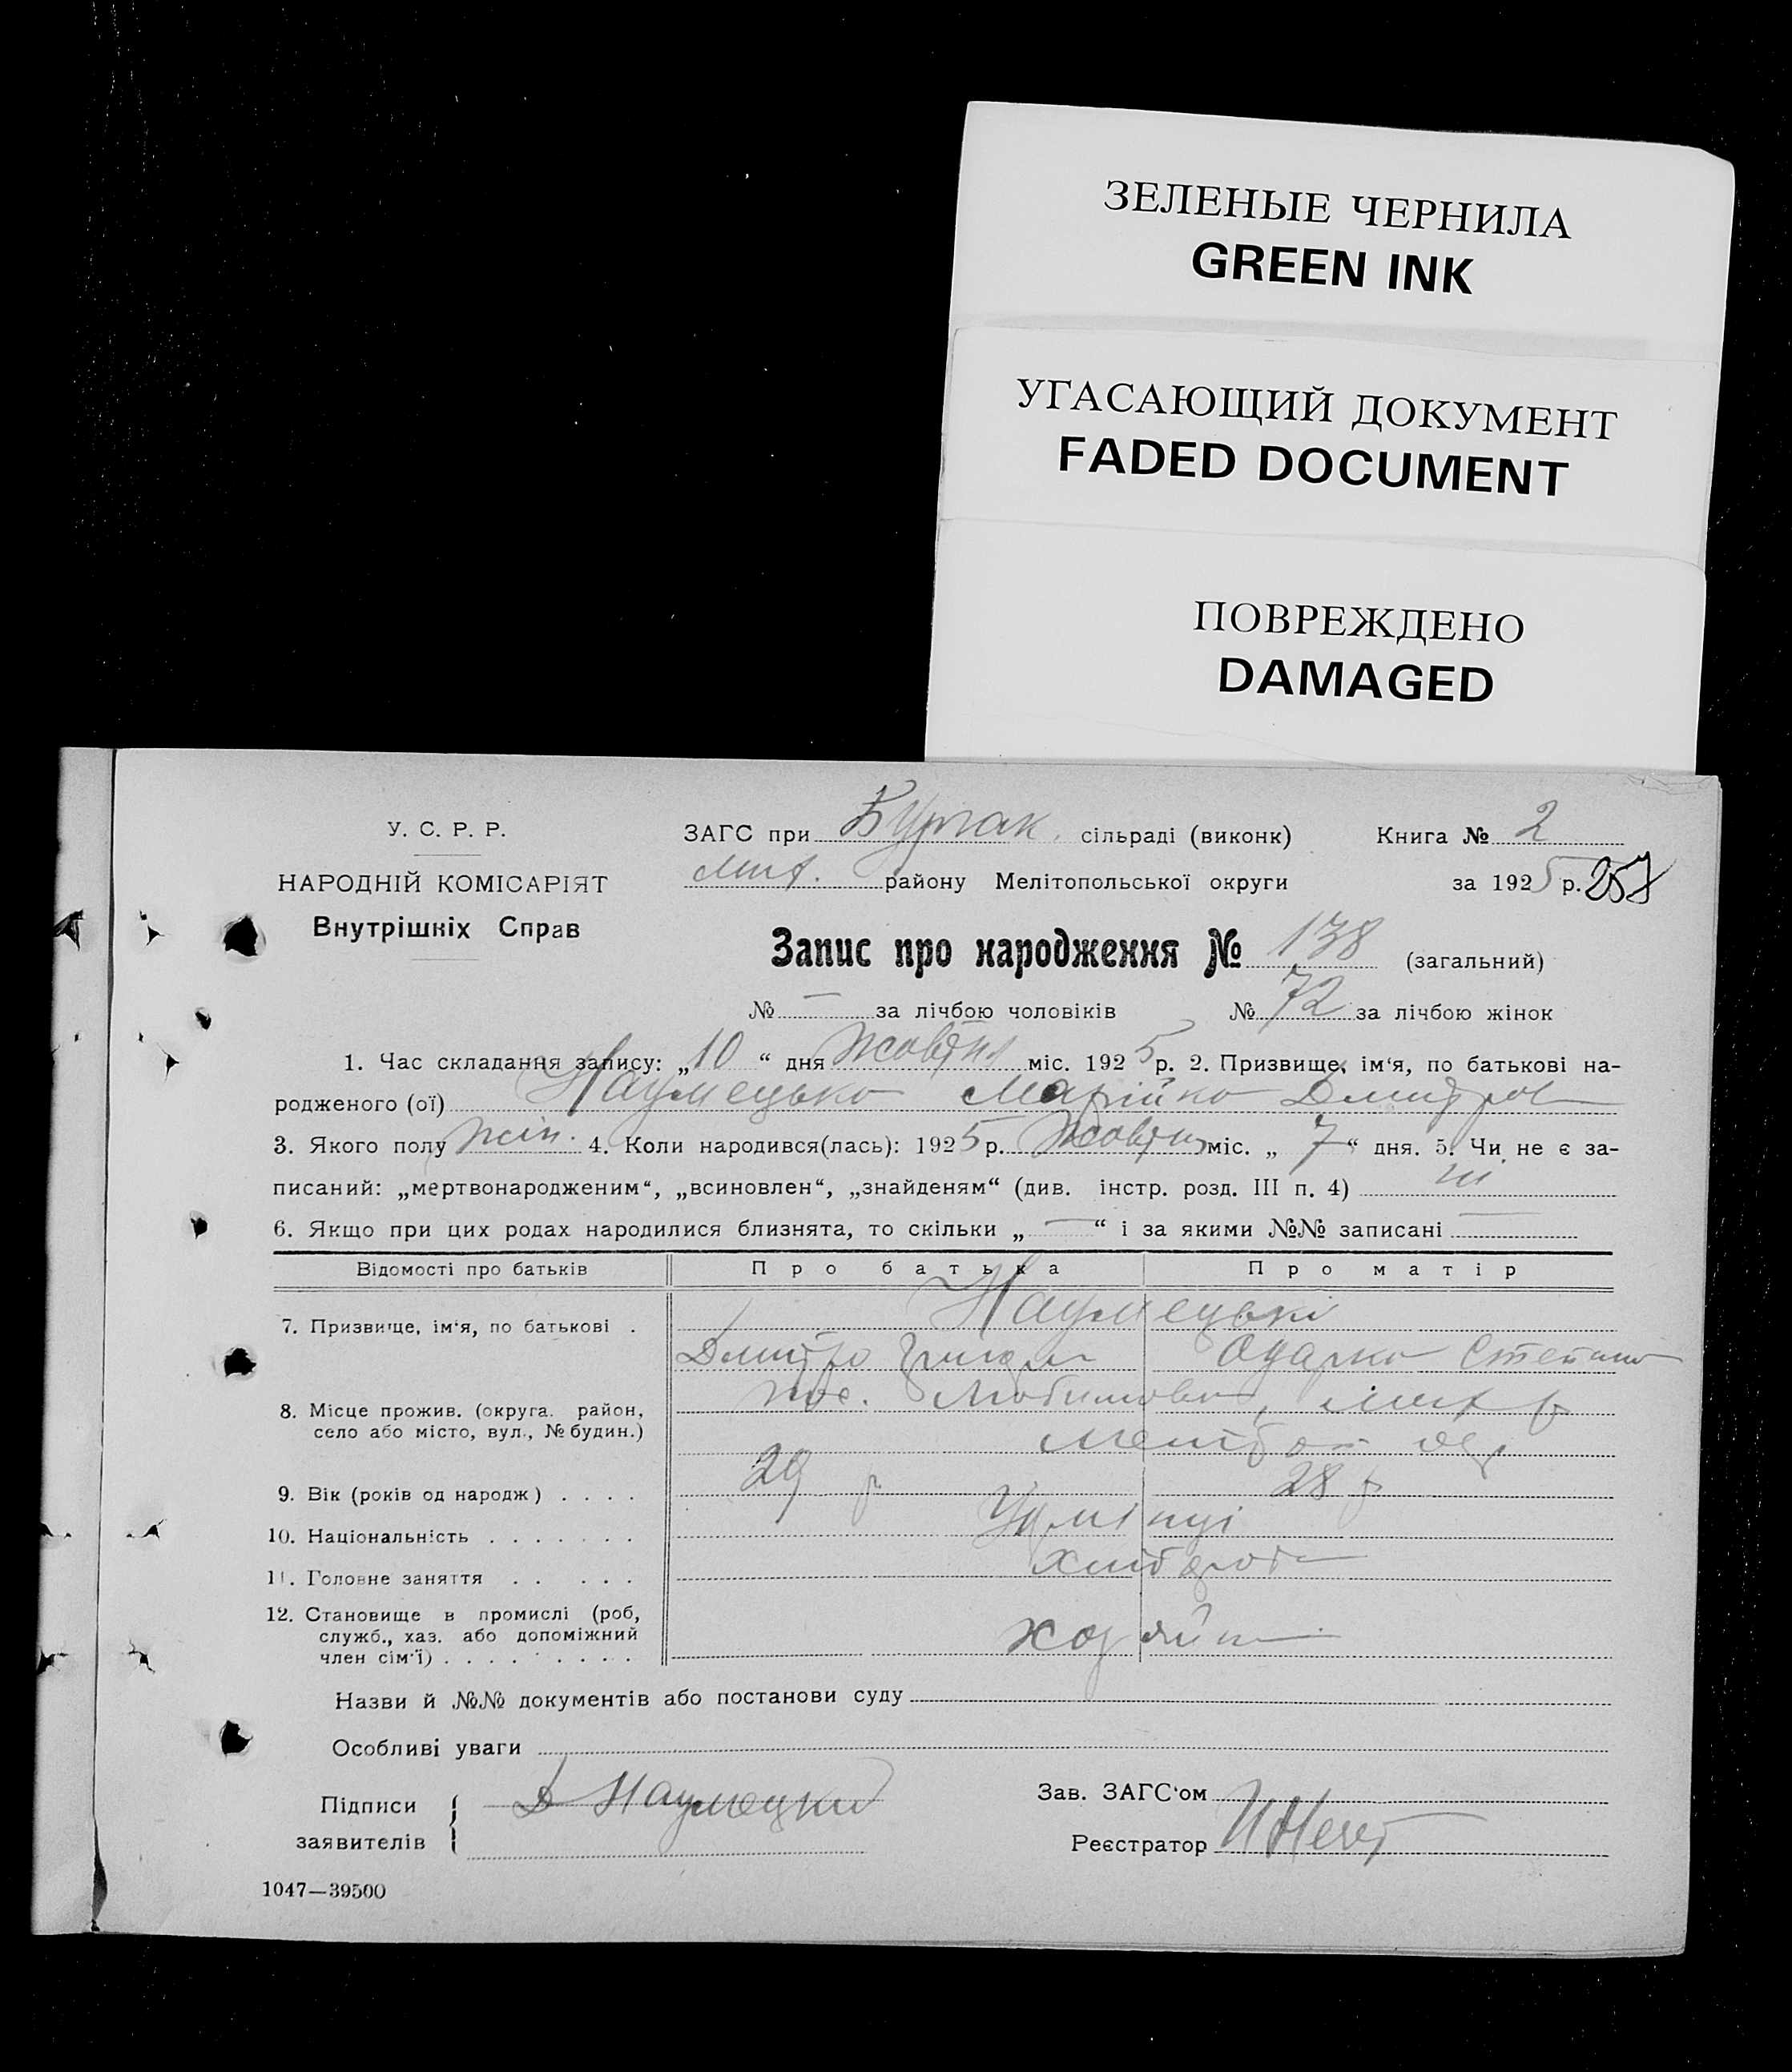 ЗЕЛЕНЫЕ ЧЕРНИЛА
GREEN INK
УГАСАЮЩИЙ ДОКУМЕНТ
FADED DOCUMENT
ПОВРЕЖДЕНО
DAMAGED
У. С. Р. Р.
НАРОДНІЙ КОМІСАРІЯТ
Внутрішніх Справ
ЗАГС при сільраді (виконк) Книга № 2
району Мелітопольської округи за 1925 р. 257
Запис про народження № 138 (загальний)
№ — за лічбою чоловіків № 72 за лічбою жінок
1. Час складання запису: „10“ дня Жовтня міс. 1925 р. 2. Призвище, ім'я, по батькові на-
родженого (ої) Наумецько Марійка Дмитров
3. Якого полу жін. 4. Коли народився(лась): 1925 р. Жовтня міс. „7“ дня. 5. Чи не є за-
писаний: „мертвонародженим“, „всиновлен“, „знайденям“ (див. інстр. розд. III п. 4) ні
6. Якщо при цих родах народилися близнята, то скільки „—“ і за якими №№ записані —
Відомості про батьків Про батька Про матір
7. Призвище, ім'я, по батькові . Наумецькі
Дмитро Григор Одарка Степан
8. Місце прожив. (округа. район,
село або місто, вул., № будин.)
9. Вік (років од народж) . . . . 29 р 28 р
10. Національність . . . . . . . Українці
11. Головне заняття . . . . . Хлібороб
12. Становище в промислі (роб,
служб., хаз. або допоміжний
член сім'ї) . . . . . . . . . хозяїн
Назви й №№ документів або постанови суду
Особливі уваги
Підписи Д Наумецкий
заявителів
Зав. ЗАГС'ом
Реєстратор
1047—39500